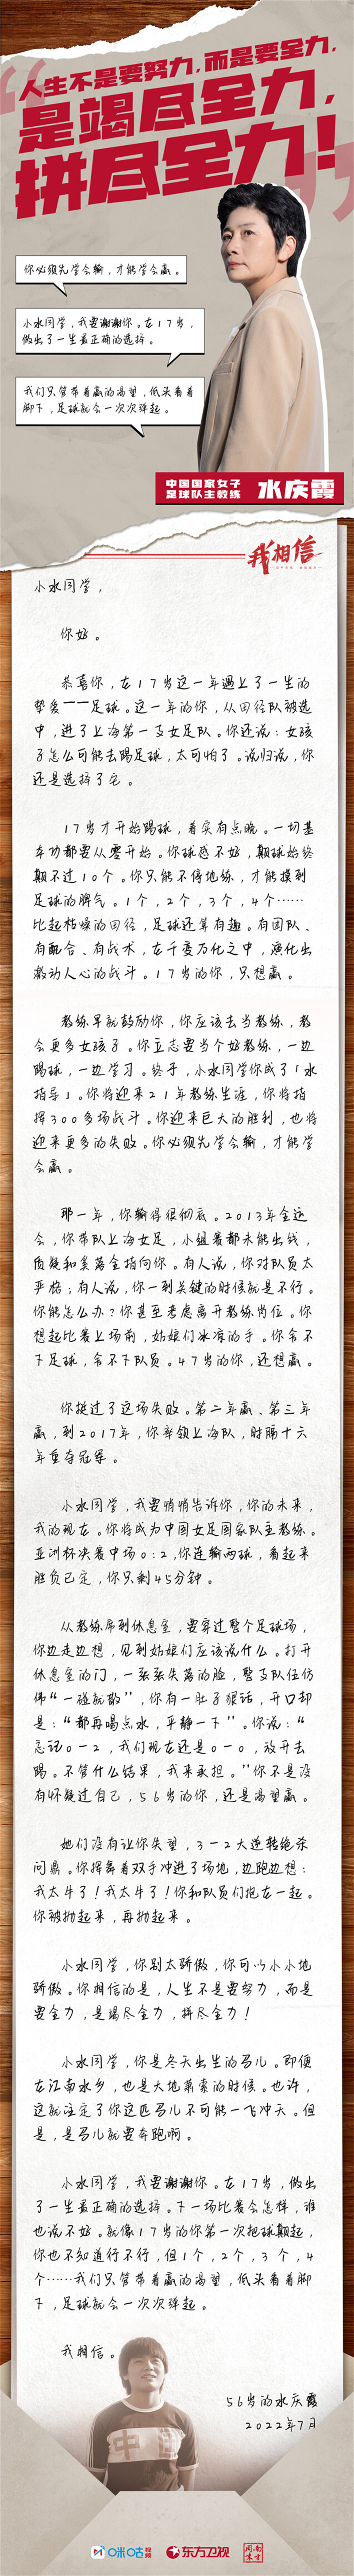 人生不是要努力,而是要全力,
是竭尽全力,
拼尽全力!
你必须先学会输,才能学会赢。
小水同学,我要谢谢你。在17岁,
做出了一生最正确的选择。
我们只管带着赢的渴望,低头看着
脚下,足球就会一次次弹起。
中国国家女子
足球队主教练
水庆霞
我相信
小水同学,
你好。
恭喜你,在17岁这一年遇上了一生的
挚爱——足球。这一年的你,从田径队被选
中,进了上海第一支女足队。你还说:女孩
子怎么可能去踢足球,太可怕了。说归说,你
还是选择了它。
17岁才开始踢球,着实有点晚。一切基
本功都要从零开始。你球感不好,颠球始终
颠不过10个。你只能不停地练,才能摸到
足球的脾气。1个,2个,3个,4个……
比起枯燥的田径,足球还算有趣。有团队、
有配合、有战术,在千变万化之中,演化出
激动人心的战斗。17岁的你,只想赢。
教练早就鼓励你,你应该去当教练,教
会更多女孩子。你立志要当个好教练,一边
踢球,一边学习。终于,小水同学你成了「水
指导」。你将迎来21年教练生涯,你将指
挥300多场战斗。你迎来巨大的胜利,也将
迎来更多的失败。你必须先学会输,才能学
会赢。
那一年,你输得很彻底。2013年全运
会,你带队上海女足,小组赛都未能出线,
质疑和奚落全指向你。有人说,你对队员太
严格;有人说,你一到关键的时候就是不行。
你能怎么办?你甚至考虑离开教练岗位。你
想起比赛上场前,姑娘们冰凉的手。你舍不
下足球,舍不下队员。47岁的你,还想赢。
你挺过了这场失败。第二年赢、第三年
赢,到2017年,你率领上海队,时隔十六
年重夺冠军。
小水同学,我要悄悄告诉你,你的未来,
我的现在。你将成为中国女足国家队主教练。
亚洲杯决赛中场0:2,你连输两球,看起来
胜负已定,你只剩45分钟。
从教练席到休息室,要穿过整个足球场,
你边走边想,见到姑娘们应该说什么。打开
休息室的门,一张张失落的脸,整支队伍仿
佛“一碰就散”,你有一肚子狠话,开口却
是:“都再喝点水,平静一下”。你说:“
忘记0-2,我们现在还是0-0,放开去
踢。不管什么结果,我来承担。”你不是没
有怀疑过自己,56岁的你,还是渴望赢。
她们没有让你失望,3-2大逆转绝杀
问鼎。你挥舞着双手冲进了场地,边跑边想:
我太牛了!我太牛了!你和队员们抱在一起。
你被抛起来,再抛起来。
小水同学,你别太骄傲,你可以小小地
骄傲。你相信的是,人生不是要努力,而是
要全力,是竭尽全力,拼尽全力!
小水同学,你是冬天出生的马儿。即便
在江南水乡,也是大地萧索的时候。也许,
这就注定了你这匹马儿不可能一飞冲天。但
是,是马儿就要奔跑啊。
小水同学,我要谢谢你。在17岁,做出
了一生最正确的选择。下一场比赛会怎样,谁
也说不好。就像17岁的你第一次把球颠起,
你也不知道行不行,但1个,2个,3个,4
个……我们只管带着赢的渴望,低头看着脚
下,足球就会一次次弹起。
我相信。
56岁的水庆霞
2022年7月
中国
咪咕视频
东方卫视
南方周末